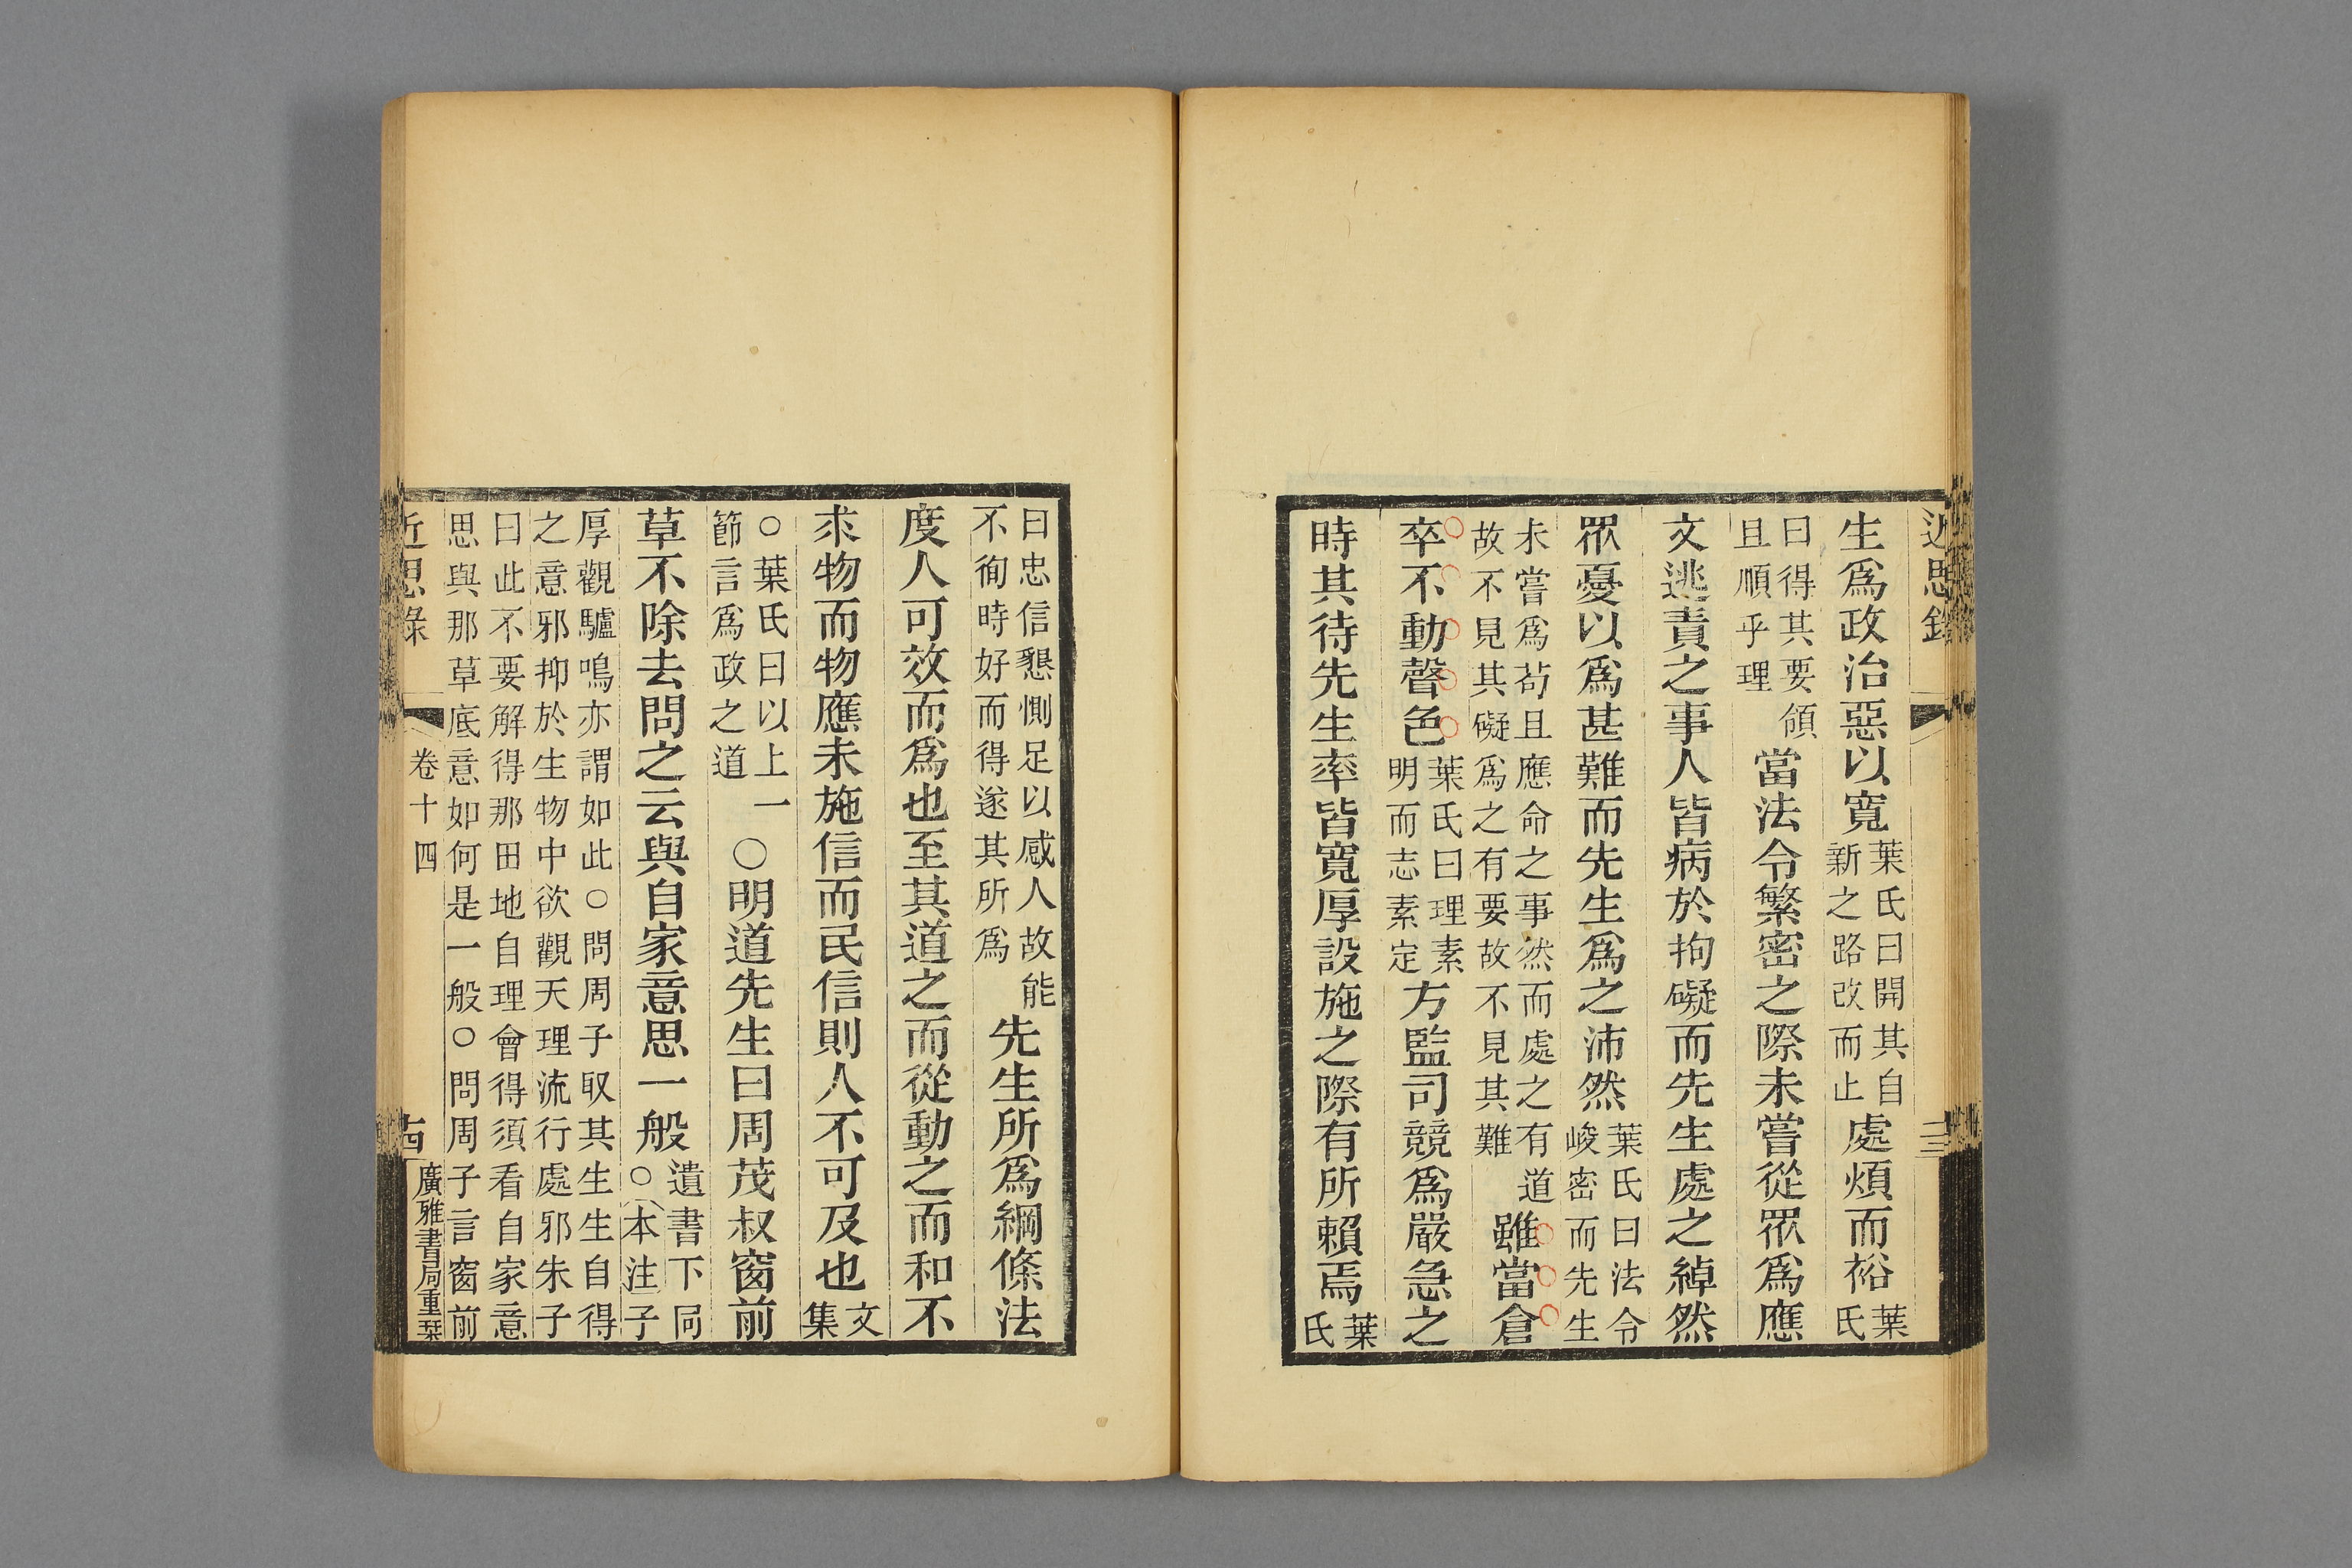 近思錄
生爲政治惡以寬葉氏曰開其自新之路改而止處煩而裕葉氏
曰得其要領且順乎理當法令繁密之際未嘗從眾爲應
文逃責之事人皆病於拘礙而先生處之綽然
眾憂以爲甚難而先生爲之沛然葉氏曰法令峻密而先生
未嘗爲苟且應命之事然而處之有道故不見其礙爲之有要故不見其難雖當倉
卒不動聲色葉氏曰理素明而志素定方監司競爲嚴急之
時其待先生率皆寬厚設施之際有所賴焉葉氏
曰忠信懇惻足以感人故能不徇時好而得遂其所爲先生所爲綱條法
度人可效而爲也至其道之而從動之而和不
求物而物應未施信而民信則人不可及也文集
○葉氏曰以上一節言爲政之道○明道先生曰周茂叔窗前
草不除去問之云與自家意思一般遺書下同○(本注)子
厚觀驢鳴亦謂如此○問周子取其生生自得之意邪抑於生物中欲觀天理流行處邪朱子
曰此不要解得那田地自理會得須看自家意思與那草底意如何是一般○問周子言窗前
近思錄 卷十四 十四 廣雅書局重栞